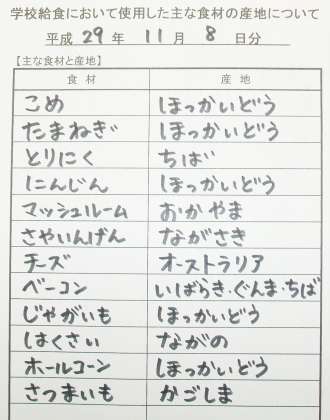 学校給食において使用した主な食材の産地について
平成 29 年 11 月 8 日分
【主な食材と産地】
食材 産地
こめ ほっかいどう
たまねぎ ほっかいどう
とりにく ちば
にんじん ほっかいどう
マッシュルーム おかやま
さやいんげん ながさき
チーズ オーストラリア
ベーコン いばらき・ぐんま・ちば
じゃがいも ほっかいどう
はくさい ながの
ホールコーン ほっかいどう
さつまいも かごしま